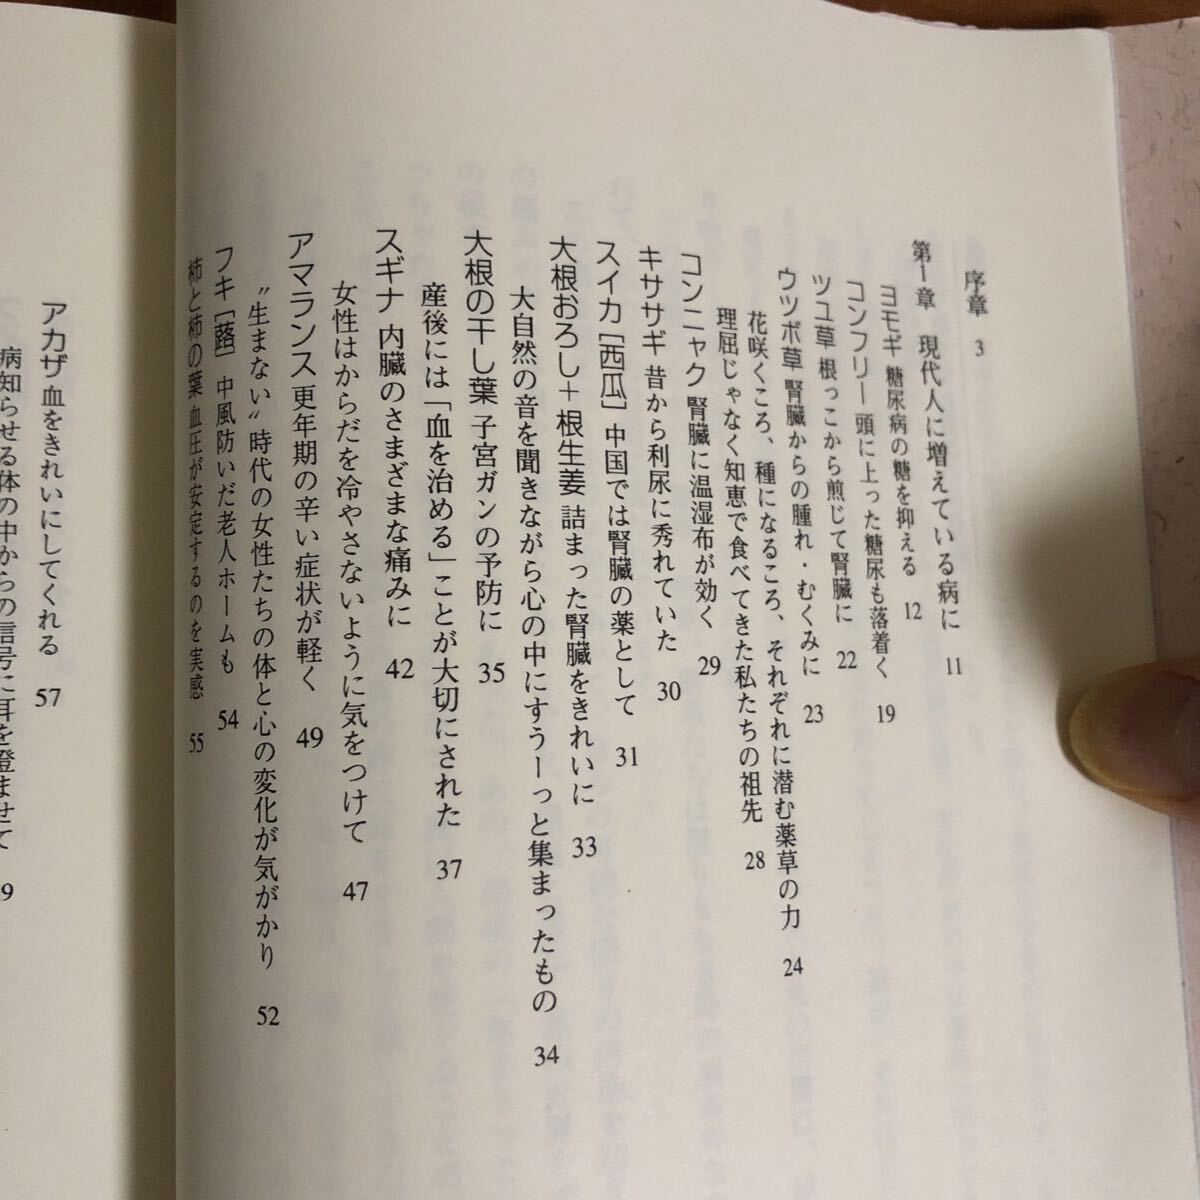 序章 3
第1章 現代人に増えている病に 11
ヨモギ 糖尿病の糖を抑える 12
コンフリー 頭に上った糖尿も落着く 19
ツユ草 根っこから煎じて腎臓に 22
ウツボ草 腎臓からの腫れ・むくみに 23
花咲くころ、種になるころ、それぞれに潜む薬草の力 24
理屈じゃなく知恵で食べてきた私たちの祖先 28
コンニャク 腎臓に温湿布が効く 29
キササギ 昔から利尿に秀れていた 30
スイカ[西瓜] 中国では腎臓の薬として 31
大根おろし+根生姜 詰まった腎臓をきれいに 33
大自然の音を聞きながら心の中にすうーっと集まったもの 34
大根の干し葉 子宮ガンの予防に 35
産後には「血を治める」ことが大切にされた 37
スギナ 内臓のさまざまな痛みに 42
女性はからだを冷やさないように気をつけて 47
アマランス 更年期の辛い症状が軽く 49
〝生まない〟時代の女性たちの体と心の変化が気がかり 52
フキ[蕗] 中風防いだ老人ホームも 54
柿と柿の葉 血圧が安定するのを実感 55
アカザ 血をきれいにしてくれる 57
病知らせる体の中からの信号に耳を澄ませて